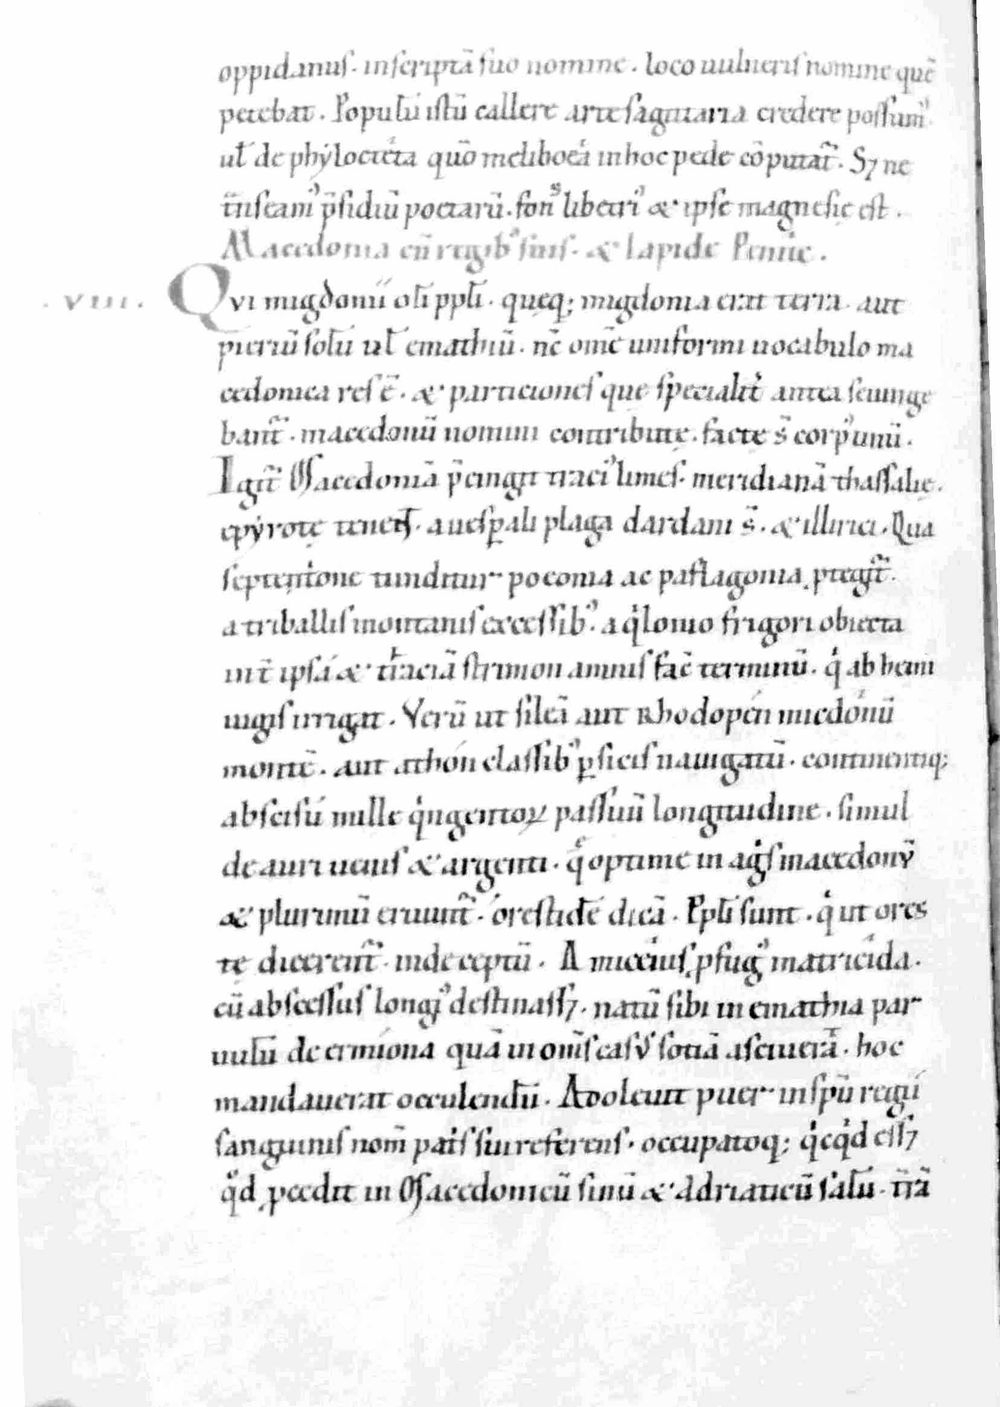 oppidanus. inscriptā suo nomine. loco uulneris nomine quē
petebat. Populū istū callere arte sagittaria credere possum᾽.
ul̄ de phýloctéta quō meliboeá in hoc pede cōputat᷑. S⁊ ne
t̄nseam᾽ p̄sidiū poetarū. fons᾽ libetri᾽ & ipse magnesie est.
Macedonia cū regib᾽ suis. & lapide Penite.
.VIII. Qvi migdonii olī ppl̄i. queq; migdonia erat terra. aut
pieriū solū ul̄ emathiū. nc̄ omē uniformi uocabulo ma
cedonica res ē. & particiones que specialit᷑ antea seiunge
bant᷑. macedonū nomini contribute. facte s̄ corp᾽ unū.
Igit᷑ Macedoniā p̄cingit traci᾽ limes. meridianā thassalie.
epýrote tenent. a uesꝑali plaga dardani s̄. & illirici. Qua
septentione tunditur poeonia ac paflagonia ꝓtegit᷑.
a triballis montanis excessib᾽. aq̇lonio frigori obiecta
int̄ ipsā & traciā strimon amnis fac̄ terminū. q̇ ab hemi
iugis irrigat. Verū ut sileā aut Rhodopén micdóniū
montē. aut athón classib᾽ ꝑsicis nauigatū. continentiq;
abscisū mille q̇ngentoꝝ passuū longitudine. simul
de auri uenis & argenti. qͦ optime in ag̊s macedonū
& plurimū eruunt᷑. órestidē dicā. Ppl̄i sunt. q̇ ut ores
te dicerent᷑. inde ceptū. A micenis ꝓfug᾽ matricída.
cū abscessus longi᾽ destinass⁊. natū sibi in emathia par
uulū de ermíona quā in om̄s casus sotiā asciuerā̄. hoc
mandauerat occulendū. Adoleuit puer in spū regii
sanguinis nom̄ patis sui referens. occupatoq; q̇cq̇d ess⁊
qͦd ꝓcedit in Macedonicū sinū & Adriaticū salū. t̄rā